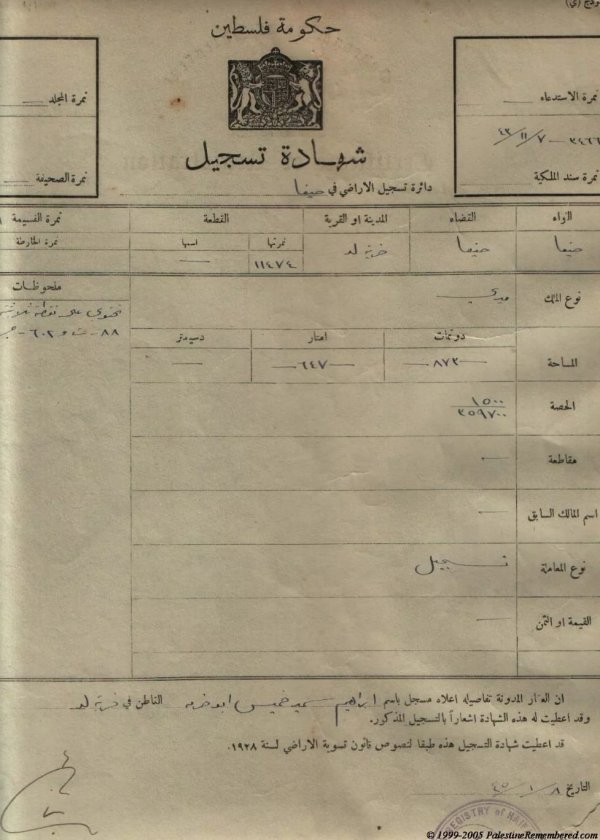 حكومة فلسطين
نمرة الاستدعاء
٣٤٦٦ - ٤٣/١١/٧
نمرة سند الملكية
نمرة المجلد
نمرة الصحيفة
شهادة تسجيل
دائرة تسجيل الاراضي في حيفا
اللواء القضاء المدينة او القرية القطعة نمرة القسيمة
نمرتها اسمها نمرة الخارطة
حيفا حيفا خربة لد ١١٤٧٤ —
نوع الملك ميري
ملحوظات
تحتوي على نقطة
٨٨ - ٦٠٢
دونمات امتار دسيمتر
المساحة — ٨٧٣ — — ٦٤٧ — —
الحصة ١٥٠٠
٣٥٩٧٠٠
مقاطعة —
اسم المالك السابق —
نوع المعاملة تسجيل
القيمة او الثمن —
ان العقار المدونة تفاصيله اعلاه مسجل باسم ابراهيم خميس القاطن في خربة لد
وقد اعطيت له هذه الشهادة اشعاراً بالتسجيل المذكور.
قد اعطيت شهادة التسجيل هذه طبقا لنصوص قانون تسوية الاراضي لسنة ١٩٢٨.
التاريخ ٤٥/١/٨
REGISTRY of HAIFA
© 1999-2005 PalestineRemembered.com